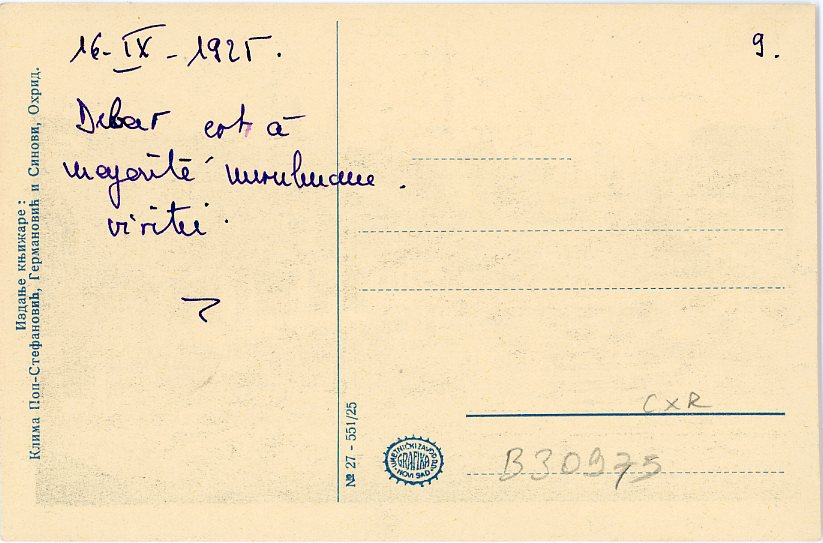 16-IX-1925.
9.
Debar est à
majorité musulmane.
visitei.
Издање књижаре:
Клима Поп-Стефановић, Германовић и Синови, Охрид.
№ 27 - 551/25
UMETNIČKI ZAVOD D.D.
GRAFIKA
NOVI SAD
CXR
B30975